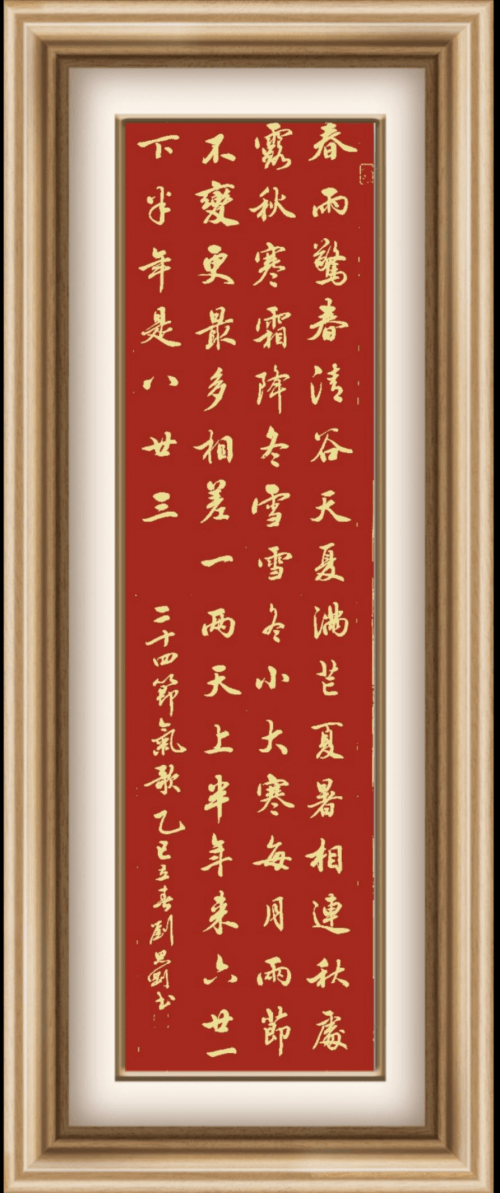 春雨驚春清谷天夏满芒夏暑相連秋處
露秋寒霜降冬雪雪冬小大寒每月雨節
不變更最多相差一两天上半年来六廿一
下半年是八廿三
二十四節氣歌 乙巳立春劉书